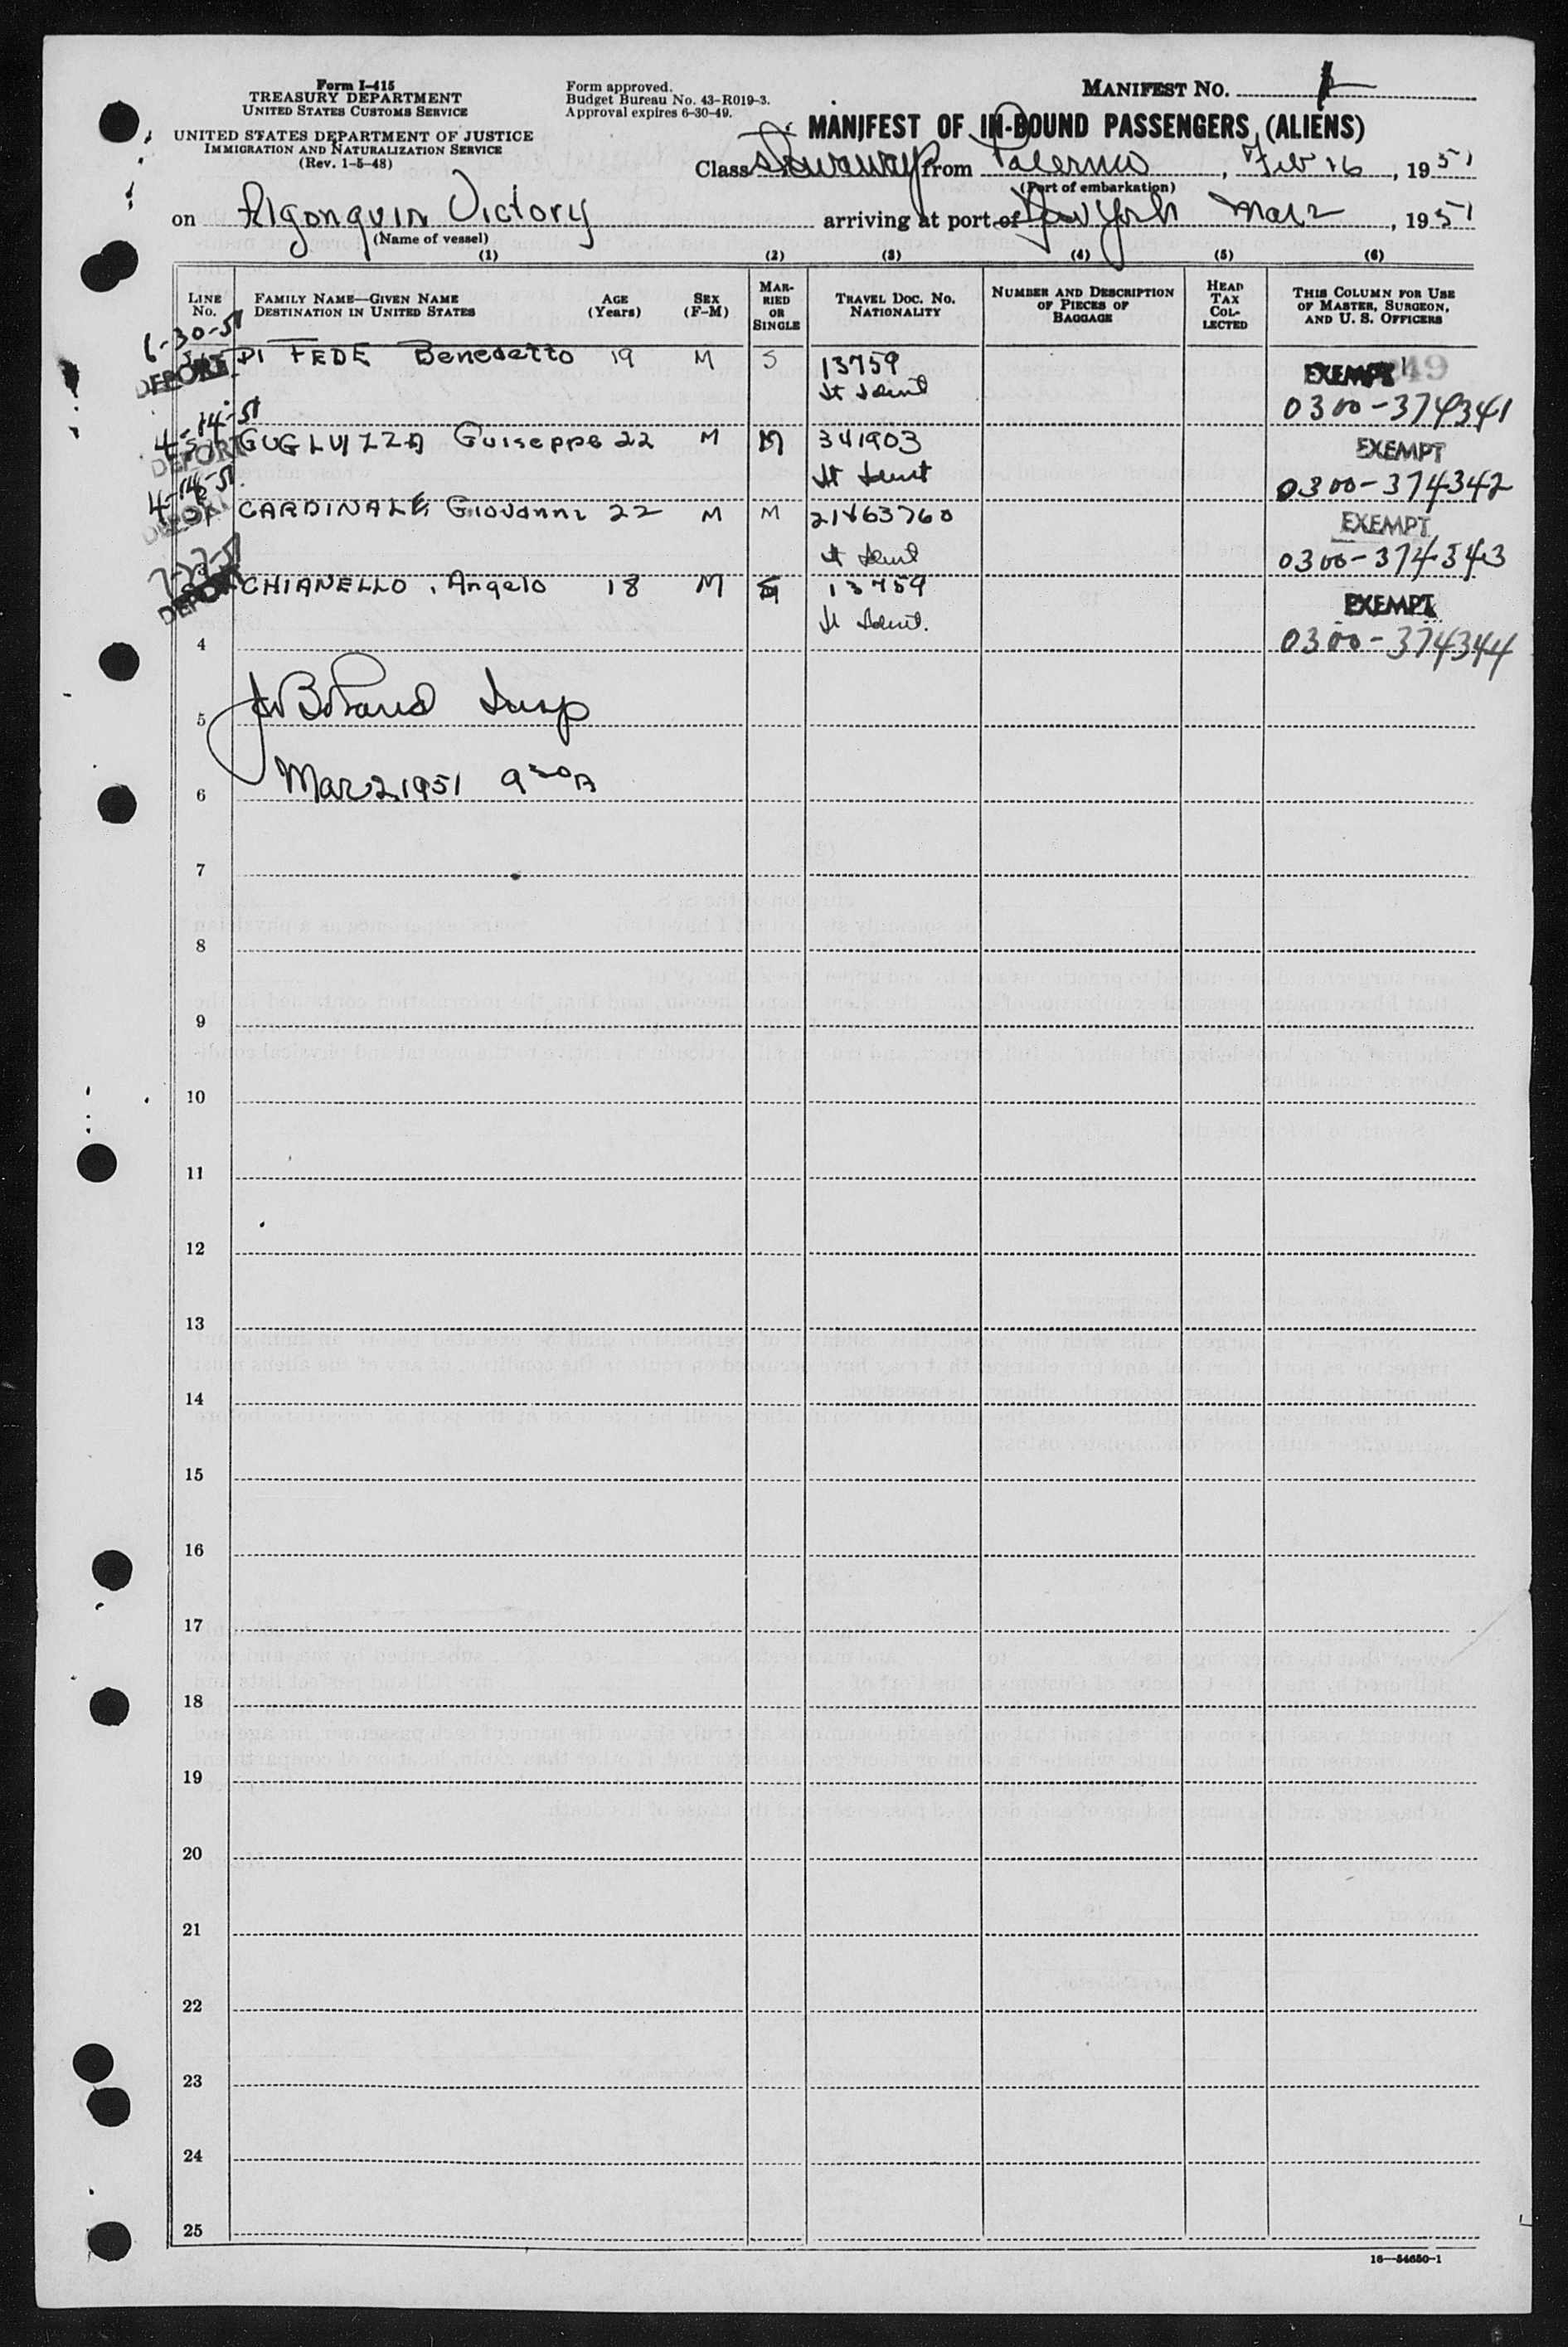 Form I-415
TREASURY DEPARTMENT
UNITED STATES CUSTOMS SERVICE
UNITED STATES DEPARTMENT OF JUSTICE
IMMIGRATION AND NATURALIZATION SERVICE
(Rev. 1-5-48)
Form approved.
Budget Bureau No. 43-R019-3.
Approval expires 6-30-49.
MANIFEST NO.
MANIFEST OF IN-BOUND PASSENGERS (ALIENS)
Class Stowaway from Palermo, Feb 16, 1951
(Port of embarkation)
on Algonquin Victory arriving at port of New York Mar 2, 1951
(Name of vessel)
(1) (2) (3) (4) (5) (6)
LINE No. FAMILY NAME—GIVEN NAME DESTINATION IN UNITED STATES AGE (Years) SEX (F-M) MARRIED OR SINGLE TRAVEL DOC. NO. NATIONALITY NUMBER AND DESCRIPTION OF PIECES OF BAGGAGE HEAD TAX COLLECTED THIS COLUMN FOR USE OF MASTER, SURGEON, AND U. S. OFFICERS
6-30-51
DEPORT DI FEDE Benedetto 19 M S 13759 EXEMPT
It Ident 0300-374341
4-14-51
DEPORT GUGLUIZZA Guiseppe 22 M M 341903 EXEMPT
It Ident 0300-374342
4-14-51
DEPORT CARDINALE Giovanni 22 M M 21463760 EXEMPT
It Ident 0300-374343
7-27-51
DEPORT CHIANELLO, Angelo 18 M S 13759 EXEMPT
It Ident. 0300-374344
4
Insp
5
Mar 2 1951 9 30 A
6
7
8
9
10
11
12
13
14
15
16
17
18
19
20
21
22
23
24
25
16—54650-1